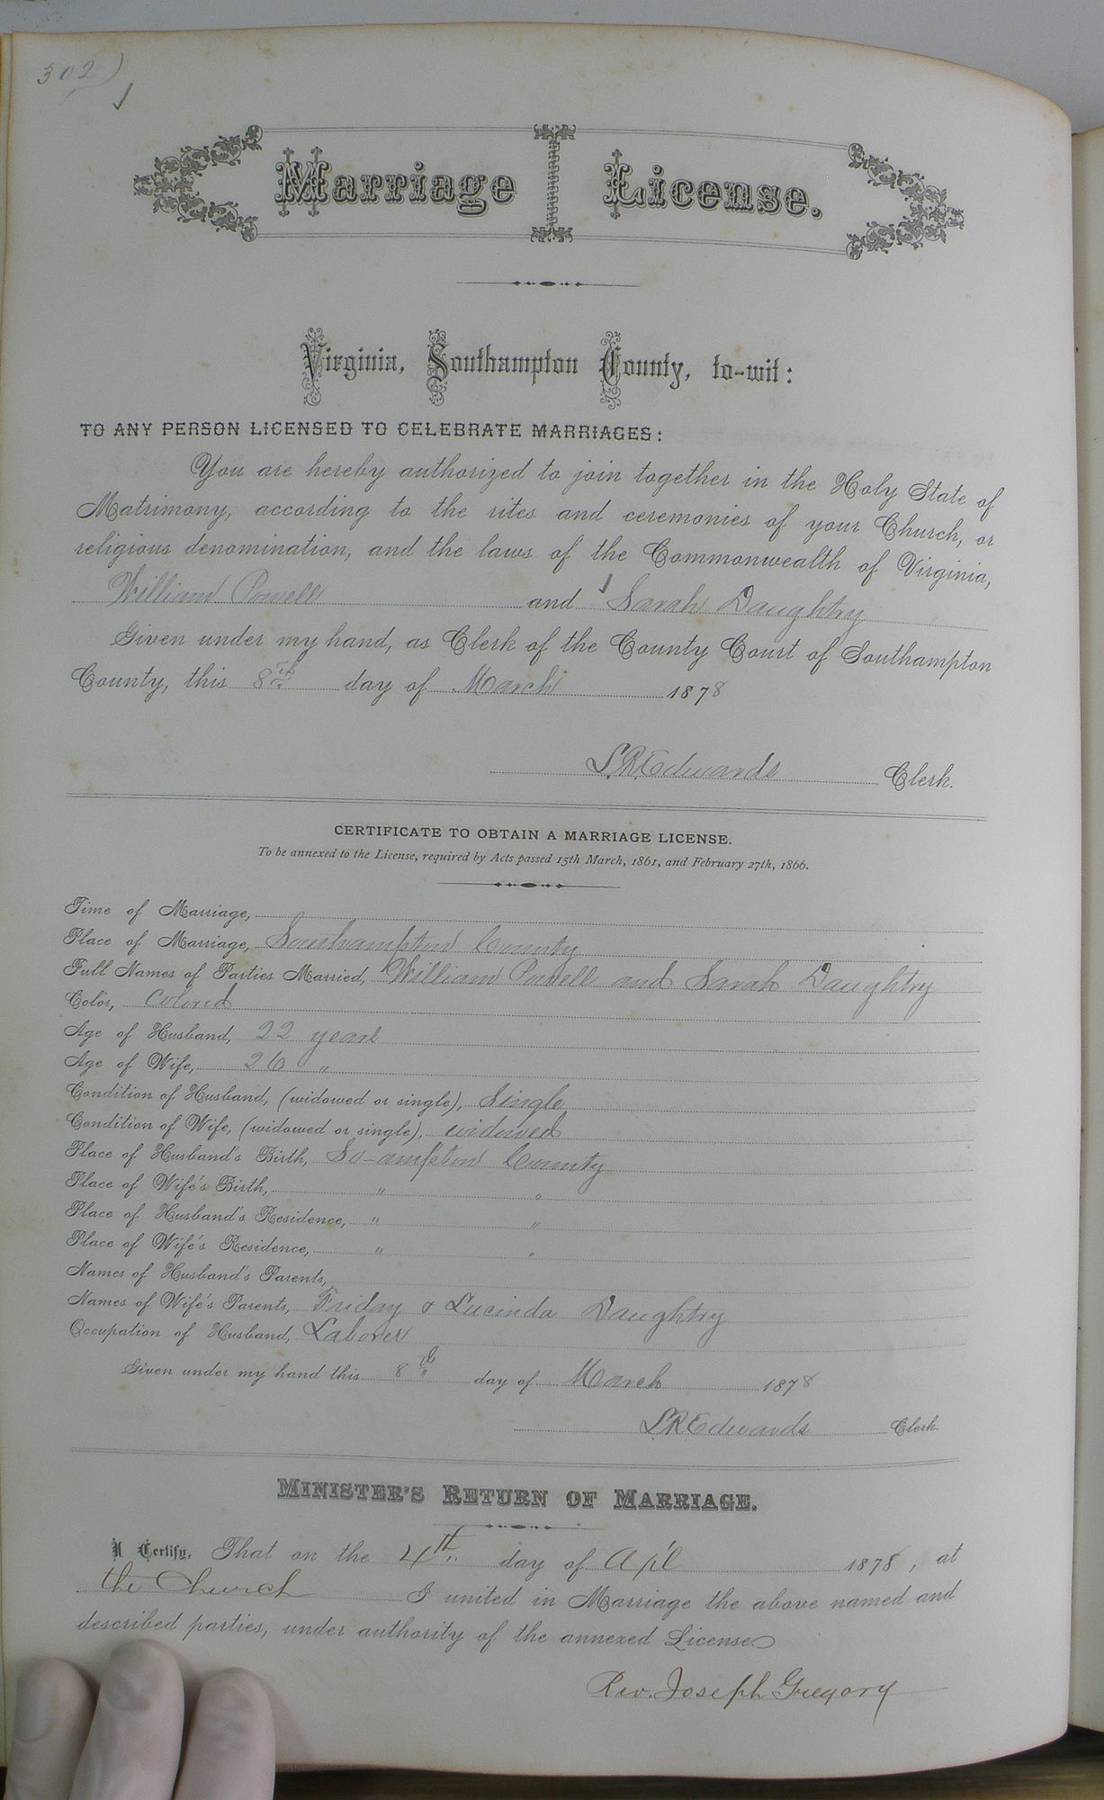 302)
Marriage License.
Virginia, Southampton County, to-wit:
TO ANY PERSON LICENSED TO CELEBRATE MARRIAGES:
You are hereby authorized to join together in the Holy State of
Matrimony, according to the rites and ceremonies of your Church, or
religious denomination, and the laws of the Commonwealth of Virginia,
William Powell and Sarah Daughtry
Given under my hand, as Clerk of the County Court of Southampton
County, this 8th day of March 1878
L.R. Edwards Clerk.
CERTIFICATE TO OBTAIN A MARRIAGE LICENSE.
To be annexed to the License, required by Acts passed 15th March, 1861, and February 27th, 1866.
Time of Marriage,
Place of Marriage, Southampton County
Full Names of Parties Married, William Powell and Sarah Daughtry
Color, Colored
Age of Husband, 22 years
Age of Wife, 26 "
Condition of Husband, (widowed or single), Single
Condition of Wife, (widowed or single), widowed
Place of Husband's Birth, So-ampton County
Place of Wife's Birth, " "
Place of Husband's Residence, " "
Place of Wife's Residence, " "
Names of Husband's Parents,
Names of Wife's Parents, Friday & Lucinda Daughtry
Occupation of Husband, Laborer
Given under my hand this 8th day of March 1878
L.R. Edwards Clerk.
MINISTER'S RETURN OF MARRIAGE.
I Certify, That on the 4th day of Apl 1878, at
the Church I united in Marriage the above named and
described parties, under authority of the annexed License
Rev. Joseph Gregory